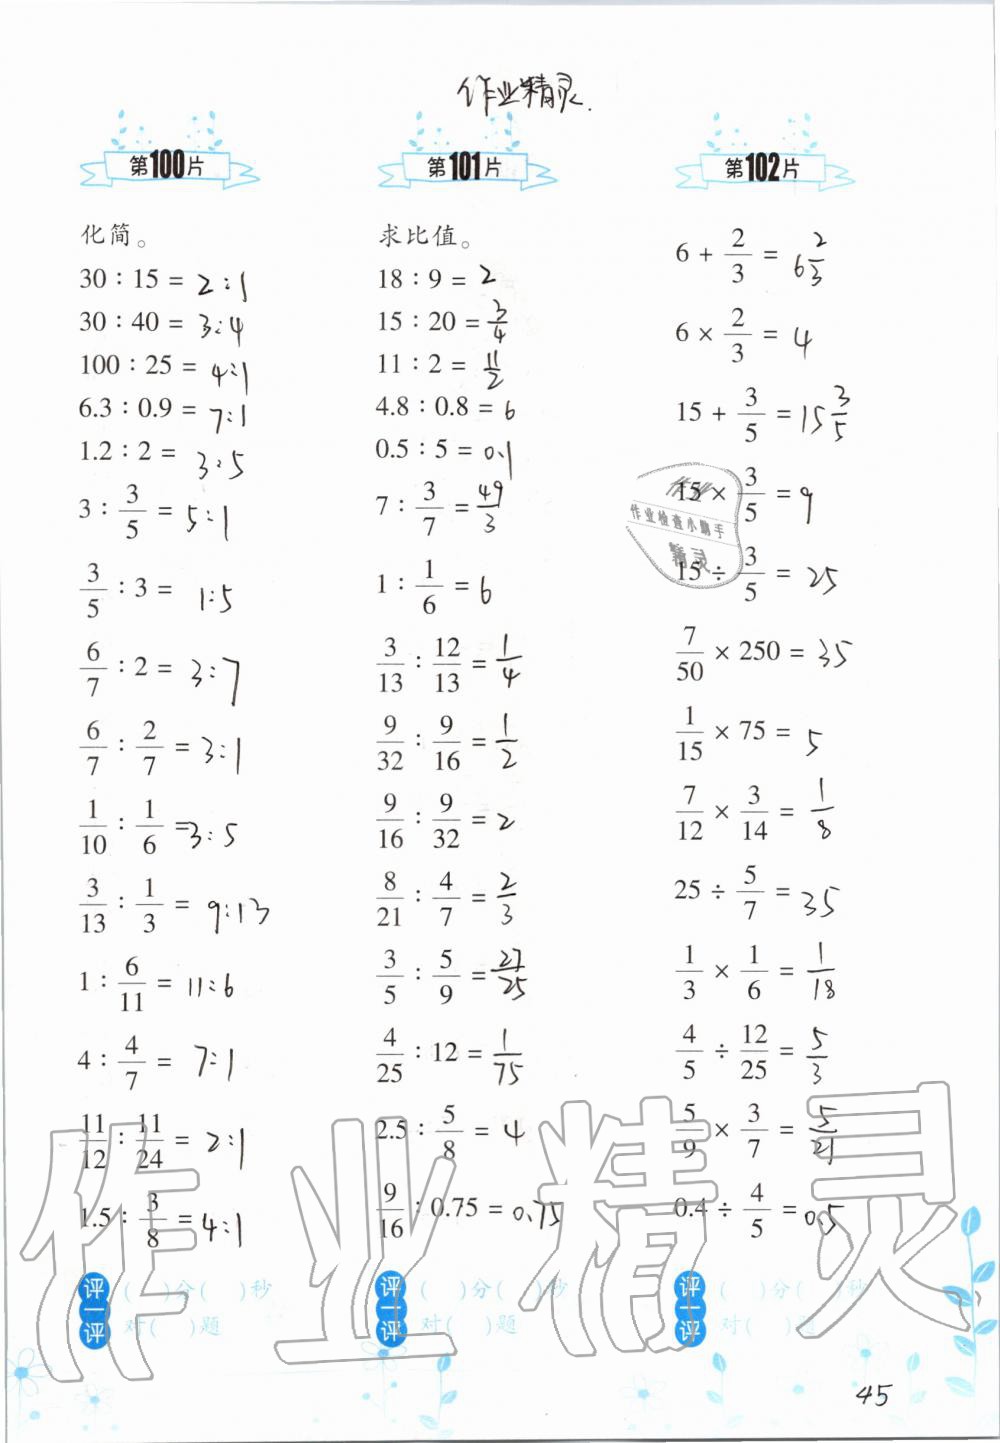 作业精灵.
第100片
化简。
30 : 15 = 2:1
30 : 40 = 3:4
100 : 25 = 4:1
6.3 : 0.9 = 7:1
1.2 : 2 = 3:5
3 : 3/5 = 5:1
3/5 : 3 = 1:5
6/7 : 2 = 3:7
6/7 : 2/7 = 3:1
1/10 : 1/6 = 3:5
3/13 : 1/3 = 9:13
1 : 6/11 = 11:6
4 : 4/7 = 7:1
11/12 : 11/24 = 2:1
1.5 : 3/8 = 4:1
评一评
( )分( )秒
对( )题
第101片
求比值。
18 : 9 = 2
15 : 20 = 3/4
11 : 2 = 11/2
4.8 : 0.8 = 6
0.5 : 5 = 0.1
7 : 3/7 = 49/3
1 : 1/6 = 6
3/13 : 12/13 = 1/4
9/32 : 9/16 = 1/2
9/16 : 9/32 = 2
8/21 : 4/7 = 2/3
3/5 : 5/9 = 27/25
4/25 : 12 = 1/75
2.5 : 5/8 = 4
9/16 : 0.75 = 0.75
评一评
( )分( )秒
对( )题
第102片
6 + 2/3 = 6 2/3
6 × 2/3 = 4
15 + 3/5 = 15 3/5
15 × 3/5 = 9
15 ÷ 3/5 = 25
7/50 × 250 = 35
1/15 × 75 = 5
7/12 × 3/14 = 1/8
25 ÷ 5/7 = 35
1/3 × 1/6 = 1/18
4/5 ÷ 12/25 = 5/3
5/9 × 3/7 = 5/21
0.4 ÷ 4/5 = 0.5
评一评
( )分( )秒
对( )题
作业
作业检查小助手
精灵
作业精灵
45